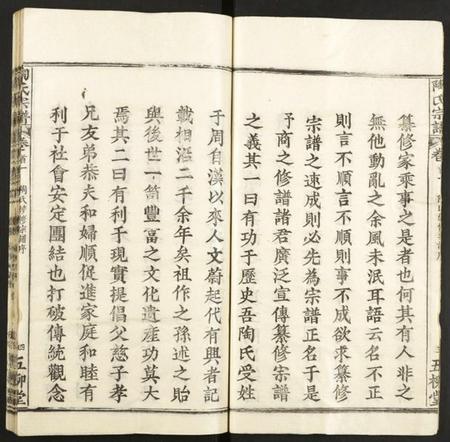 陶氏宗譜
卷首
五柳堂
纂修家乘事之是者也何其有人非之
無他動亂之余風未泯耳語云名不正
則言不順言不順則事不成欲求纂修
宗譜之速成則必先為宗譜正名于是
予商之修譜諸君廣泛宣傳纂修宗譜
之義其一曰有功于歷史吾陶氏受姓
于周自漢以來人文蔚起代有興者記
載相沿二千余年矣祖作之孫述之貽
與後世一筒豐富之文化遺產功莫大
焉其二曰有利于現實提倡父慈子孝
兄友弟恭夫和婦順促進家庭和睦有
利于社會安定團結也打破傳統觀念
陶氏宗譜
卷首
四
五柳堂